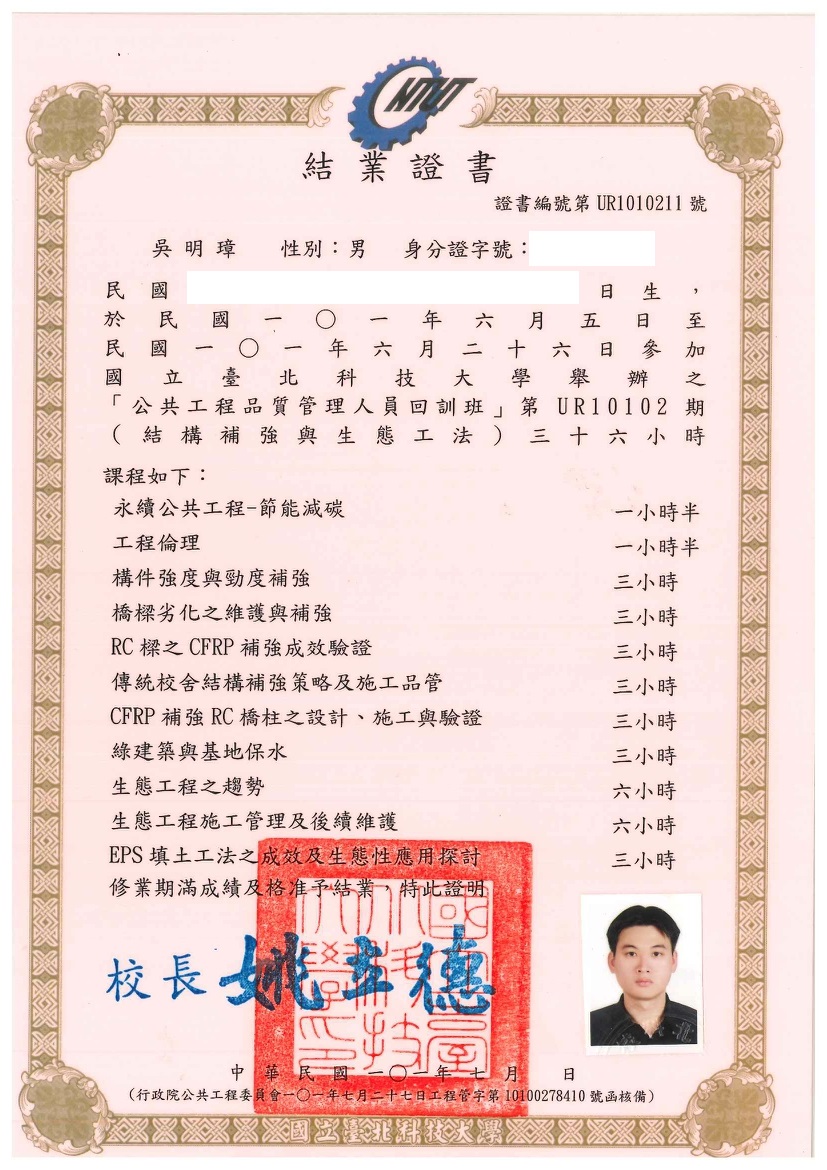 NTUT
結業證書
證書編號第 UR1010211 號
吳明璋 性別：男 身分證字號：
民國 日生，
於民國一〇一年六月五日至
民國一〇一年六月二十六日參加
國立臺北科技大學舉辦之
「公共工程品質管理人員回訓班」第 UR10102 期
(結構補強與生態工法)三十六小時
課程如下：
永續公共工程-節能減碳 一小時半
工程倫理 一小時半
構件強度與勁度補強 三小時
橋樑劣化之維護與補強 三小時
RC 樑之 CFRP 補強成效驗證 三小時
傳統校舍結構補強策略及施工品管 三小時
CFRP 補強 RC 橋柱之設計、施工與驗證 三小時
綠建築與基地保水 三小時
生態工程之趨勢 六小時
生態工程施工管理及後續維護 六小時
EPS 填土工法之成效及生態性應用探討 三小時
修業期滿成績及格准予結業，特此證明
校長 姚立德
國立臺北科技大學印
中華民國一〇一年七月 日
(行政院公共工程委員會一〇一年七月二十七日工程管字第 10100278410 號函核備)
國立臺北科技大學